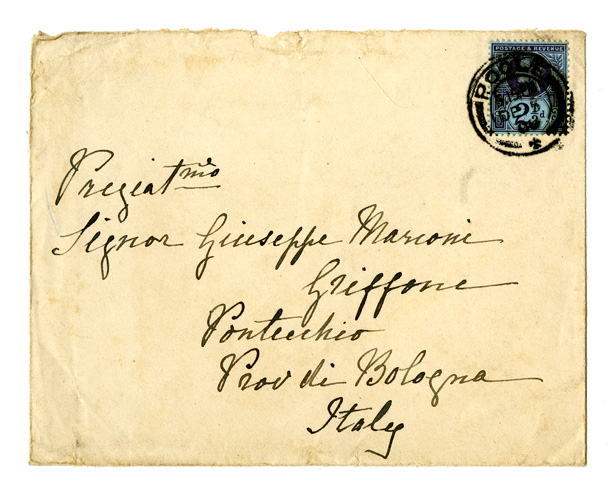 POSTAGE & REVENUE
POOLE
2½d
Pregiatmo
Signor Giuseppe Marconi
Griffone
Pontecchio
Prov di Bologna
Italy